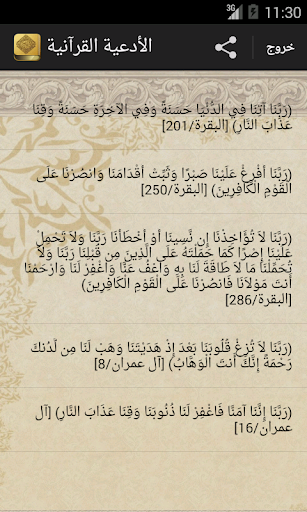 3G 11:30
الأدعية القرآنية خروج
(رَبَّنَا آتِنَا فِي الدُّنْيَا حَسَنَةً وَفِي الآخِرَةِ حَسَنَةً وَقِنَا
عَذَابَ النَّارِ) [البقرة/201]
(رَبَّنَا أَفْرِغْ عَلَيْنَا صَبْرًا وَثَبِّتْ أَقْدَامَنَا وَانصُرْنَا عَلَى
الْقَوْمِ الْكَافِرِينَ) [البقرة/250]
(رَبَّنَا لاَ تُؤَاخِذْنَا إِن نَّسِينَا أَوْ أَخْطَأْنَا رَبَّنَا وَلاَ تَحْمِلْ
عَلَيْنَا إِصْرًا كَمَا حَمَلْتَهُ عَلَى الَّذِينَ مِن قَبْلِنَا رَبَّنَا وَلاَ
تُحَمِّلْنَا مَا لاَ طَاقَةَ لَنَا بِهِ وَاعْفُ عَنَّا وَاغْفِرْ لَنَا وَارْحَمْنَا
أَنتَ مَوْلاَنَا فَانصُرْنَا عَلَى الْقَوْمِ الْكَافِرِينَ)
[البقرة/286]
(رَبَّنَا لاَ تُزِغْ قُلُوبَنَا بَعْدَ إِذْ هَدَيْتَنَا وَهَبْ لَنَا مِن لَّدُنكَ
رَحْمَةً إِنَّكَ أَنتَ الْوَهَّابُ) [آل عمران/8]
(رَبَّنَا إِنَّنَا آمَنَّا فَاغْفِرْ لَنَا ذُنُوبَنَا وَقِنَا عَذَابَ النَّارِ) [آل
عمران/16]